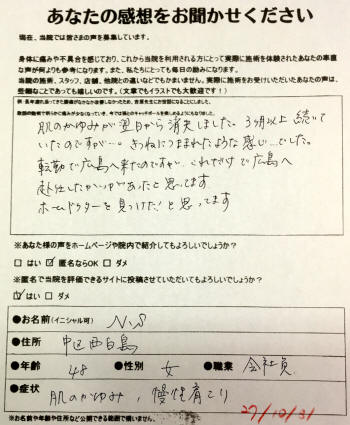 あなたの感想をお聞かせください
現在、当院では皆さまの声を募集しています。
身体に痛みや不具合を感じており、これから当院を利用される方にとって実際に施術を体験されたあなたの率直
な声が何よりも参考になります。また、私たちにとっても毎日の励みになります。
当院の施術、スタッフ、店舗、他院との違いなどでもかまいません。実際に施術をお受けいただいたあなたの声は、
些細なことであっても嬉しいのです。（文章でもイラストでも大歓迎です！）
肌のかゆみが翌日から消失しました。3ヶ月以上続いて
いたのですが… きつねにつままれたような感じ…でした。
転勤で広島へ来たのですが、これだけで広島へ
赴任したかいがあったと思ってます
ホームドクターを見つけた！と思ってます
※あなた様の声をホームページや院内で紹介してもよろしいでしょうか？
□ はい ☑ 匿名ならOK □ ダメ
※匿名で当院を評価できるサイトに投稿させていただいてもよろしいでしょうか？
☑ はい □ ダメ
●お名前(イニシャル可) N.S
●住所 中区西白島
●年齢 48 ●性別 女 ●職業 会社員
●症状 肌のかゆみ, 慢性肩こり
27/10/31
※お名前や年齢や住所など公開できる範囲で構いません。